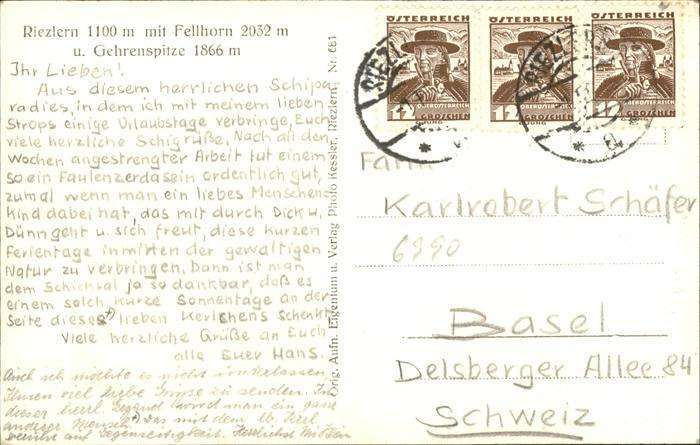 Riezlern 1100 m mit Fellhorn 2032 m
u. Gehrenspitze 1866 m
Ihr Lieben!
Aus diesem herrlichen Schipa
radies, in dem ich mit meinem lieben
Strops einige Urlaubstage verbringe, Euch
viele herzliche Schigrüße. Nach all den
Wochen angestrengter Arbeit tut einem
so ein Faulenzerdasein ordentlich gut,
zumal wenn man ein liebes Menschen
kind dabei hat, das mit durch Dick u.
Dünn geht u. sich freut, diese kurzen
Ferientage inmitten der gewaltigen
Natur zu verbringen. Dann ist man
dem Schicksal ja so dankbar, daß es
einem solch kurze Sonnentage an der
Seite dieses +) lieben Kerlchens schenkt
Viele herzliche Grüße an Euch
alle Euer Hans.
Auch ich möchte es nicht unterlassen
Ihnen viel liebe Grüße zu senden. In
dieser herrl. Gegend wird man ein ganz
anderer Mensch. +) Das mit dem lb. Kerl
beruht auf Gegenseitigkeit. Herzlichst
Orig. Aufn. Eigentum u. Verlag Photo Kessler, Riezlern, Nr. 681
ÖSTERREICH
12 OBERÖSTERREICH
GROSCHEN
ÖSTERREICH
12 OBERÖSTERREICH
GROSCHEN
ÖSTERREICH
12 OBERÖSTERREICH
GROSCHEN
RIEZLERN
RIEZLERN
Fam
Karlrobert Schäfer
6990
Basel
Delsberger Allee 84
Schweiz